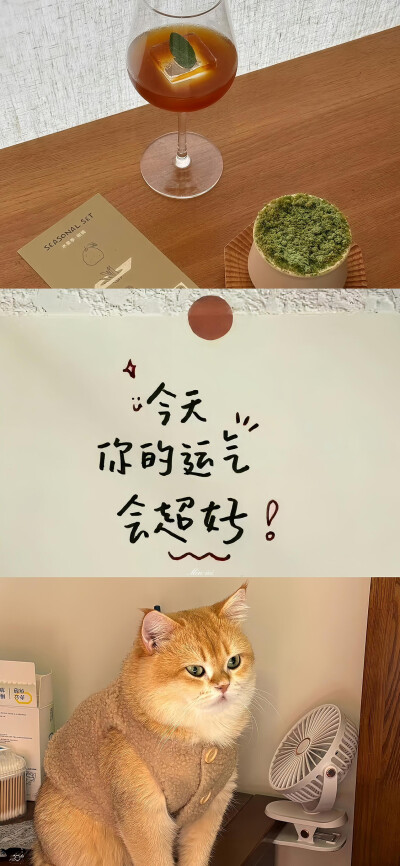 SEASONAL SET
今天
你的运气
会超好!